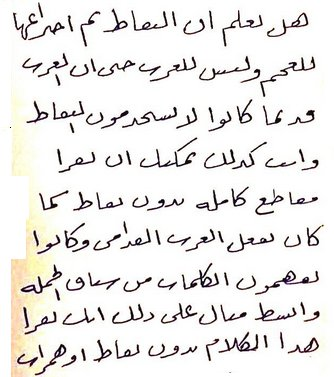 هل تعلم ان النقاط تم اختراعها
للعجم وليس للعرب حتى ان العرب
قديما كانوا لا يستخدمون النقاط
وانت كذلك يمكنك ان تقرا
مقاطع كامله بدون نقاط كما
كان يفعل العرب القدامى وكانوا
يفهمون الكلمات من سياق الجمله
وابسط مثال على ذلك انك تقرا
هذا الكلام بدون نقاط او همزات